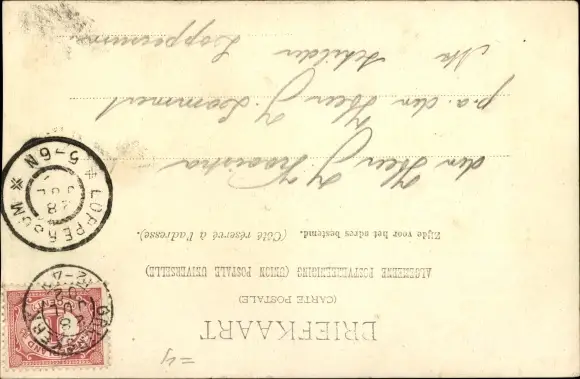 BRIEFKAART
(CARTE POSTALE)
ALGEMEENE POSTVEREENIGING (UNION POSTALE UNIVERSELLE)
Zijde voor het adres bestemd. (Côté réservé à l'adresse).
den Heer J. Kooistra
p.a. den Heer J.
Mr Schilder Loppersum
LOPPERSUM
5-6N